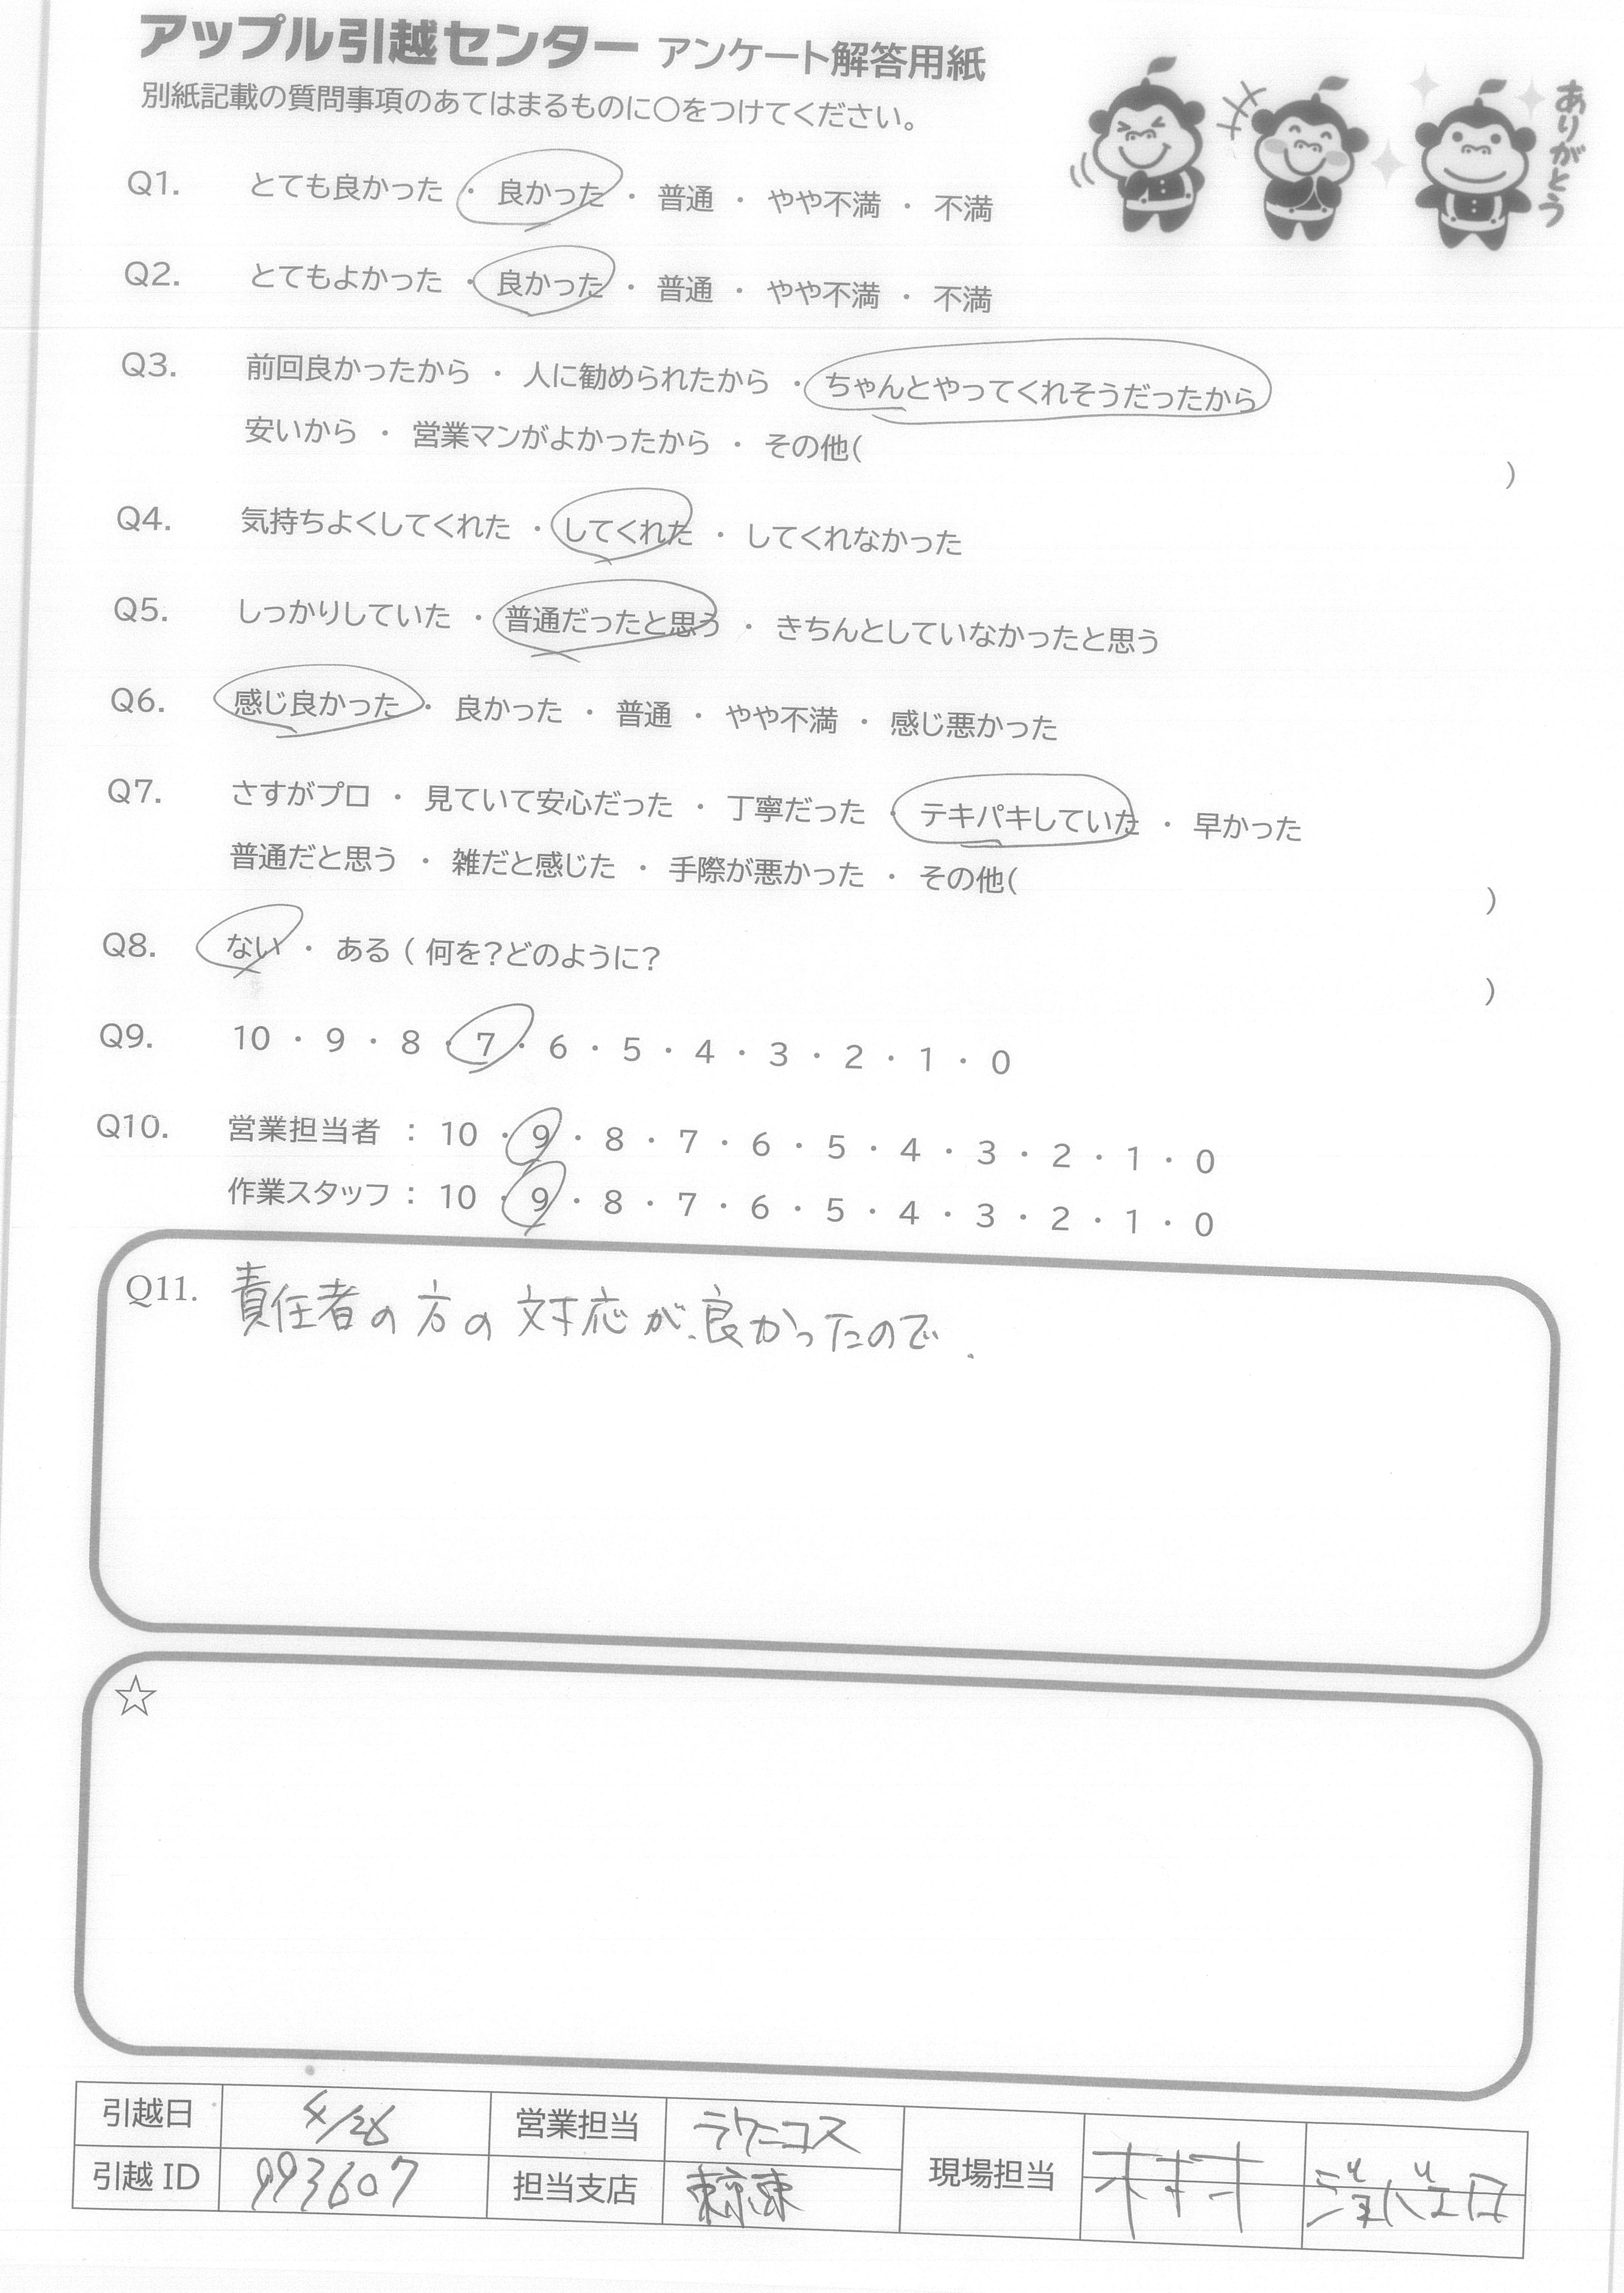 アップル引越センター アンケート解答用紙
別紙記載の質問事項のあてはまるものに○をつけてください。
ありがとう
Q1. とても良かった ・ 良かった ・ 普通 ・ やや不満 ・ 不満
Q2. とてもよかった ・ 良かった ・ 普通 ・ やや不満 ・ 不満
Q3. 前回良かったから ・ 人に勧められたから ・ ちゃんとやってくれそうだったから
安いから ・ 営業マンがよかったから ・ その他( )
Q4. 気持ちよくしてくれた ・ してくれた ・ してくれなかった
Q5. しっかりしていた ・ 普通だったと思う ・ きちんとしていなかったと思う
Q6. 感じ良かった ・ 良かった ・ 普通 ・ やや不満 ・ 感じ悪かった
Q7. さすがプロ ・ 見ていて安心だった ・ 丁寧だった ・ テキパキしていた ・ 早かった
普通だと思う ・ 雑だと感じた ・ 手際が悪かった ・ その他( )
Q8. ない ・ ある ( 何を?どのように? )
Q9. 10 ・ 9 ・ 8 ・ 7 ・ 6 ・ 5 ・ 4 ・ 3 ・ 2 ・ 1 ・ 0
Q10. 営業担当者 : 10 ・ 9 ・ 8 ・ 7 ・ 6 ・ 5 ・ 4 ・ 3 ・ 2 ・ 1 ・ 0
作業スタッフ : 10 ・ 9 ・ 8 ・ 7 ・ 6 ・ 5 ・ 4 ・ 3 ・ 2 ・ 1 ・ 0
Q11. 責任者の方の対応が良かったので.
☆
引越日 4/26 営業担当 ラクニコス 現場担当
引越 ID 993607 担当支店 東京東